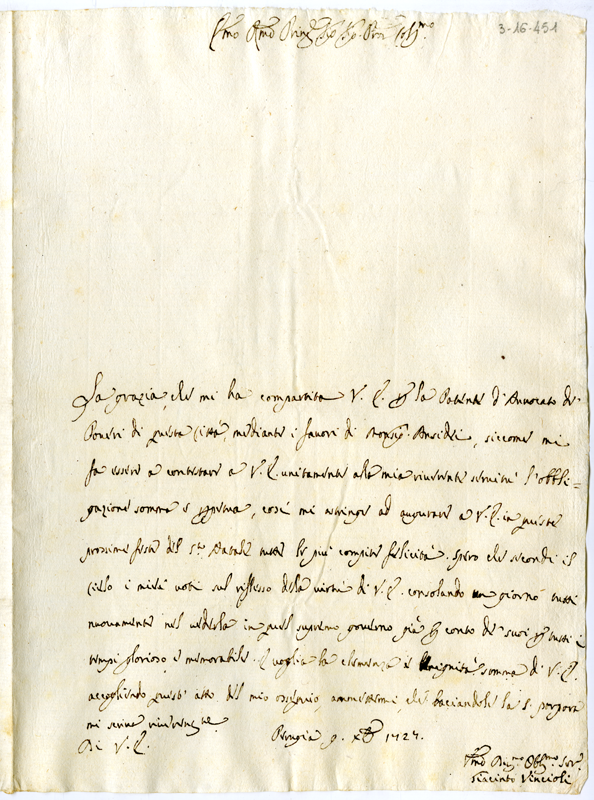 3-16-451
Emo Rmo Prin͠pe
La grazia, che mi ha compartita V. E. p la Patente d'Auvocato de
Poveri di questa Città, mediante i favori di Monsig. Ansidei, siccome mi
fa essere a contestare a V. E. unitamente alla mia riverente servitù l'obbli=
gazione somma e perpetua, così mi astringe ad augurare a V. E. in queste
prossime feste del S.to Natale tutte le più compite felicità. Spero che secondi il
Cielo i miei voti sul riflesso della virtù di V. E. consolando un giorno tutti
nuovamente nel vederla in quel supremo governo già p conto de' suoi p tutti i
tempi glorioso, e memorabile. E voglia la clemenza e benignità somma di V. E.
accogliendo quest' atto del mio ossequio, ammettermi, che baciandole la S. porpora
mi scriva riverente
Di V. E.
Perugia 9. Xbre 1727.
Umo Obblmo Ser.
Giacinto Vincioli